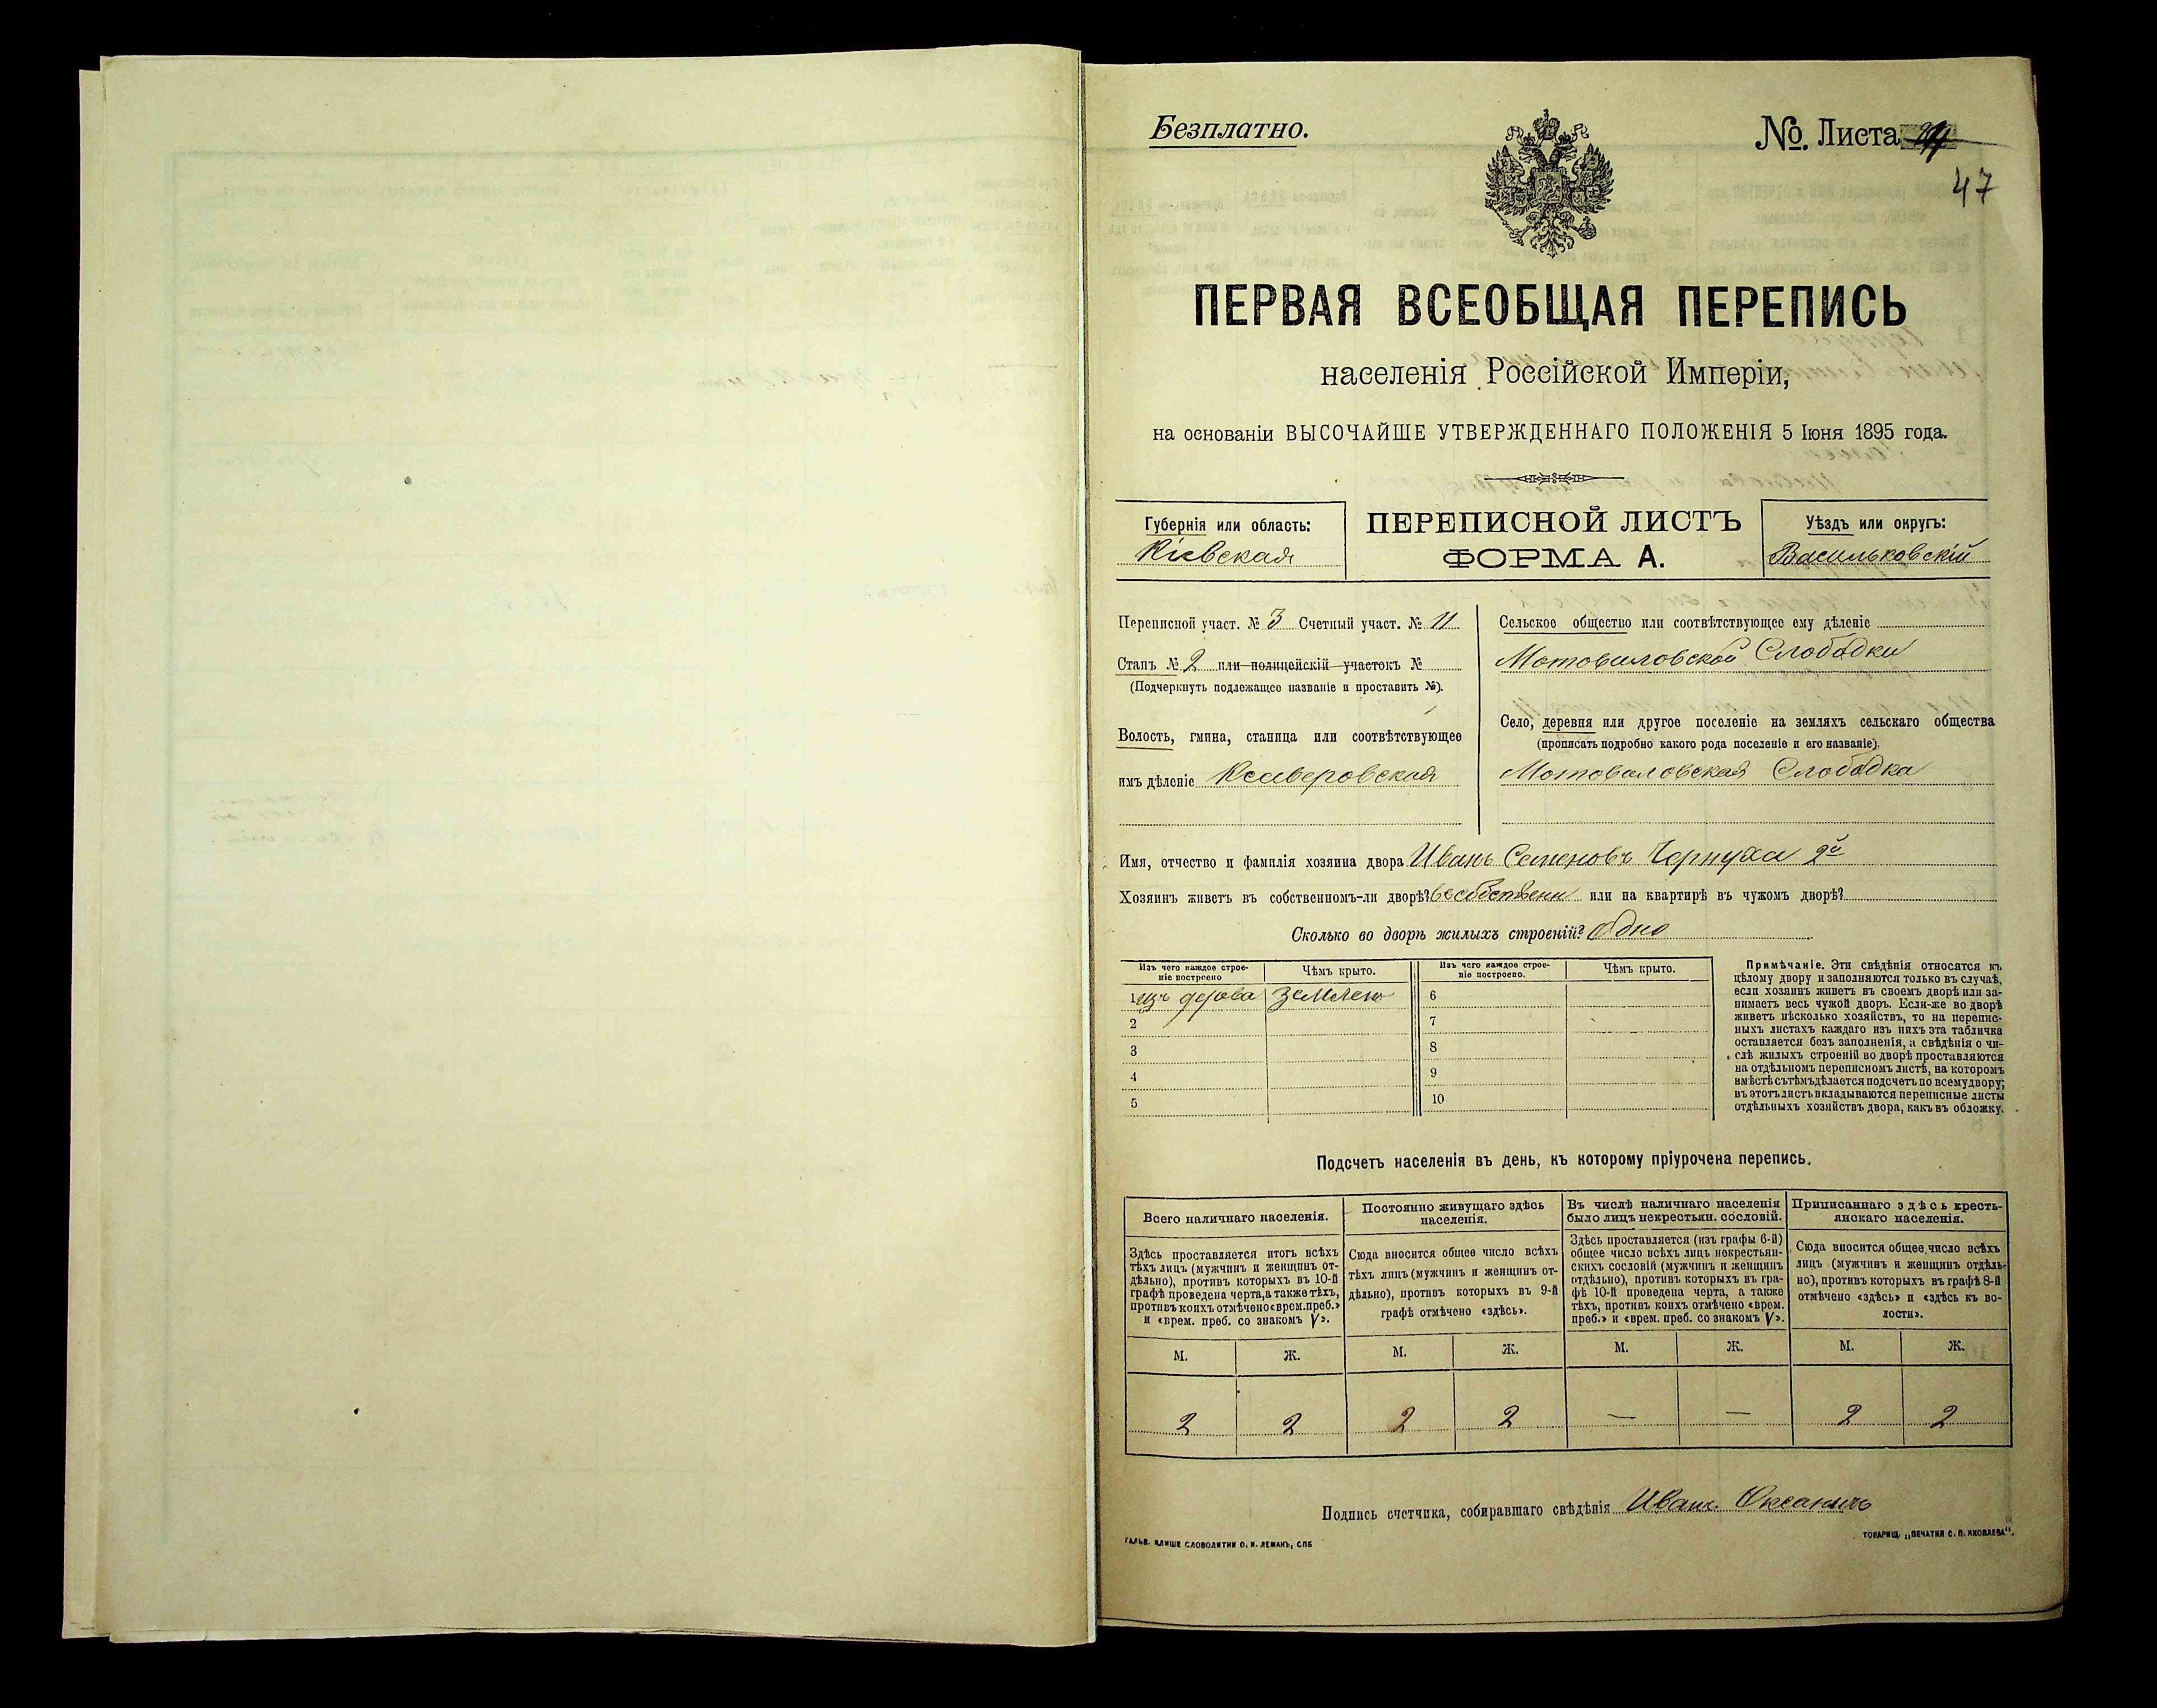 Безплатно.
№. Листа
47
ПЕРВАЯ ВСЕОБЩАЯ ПЕРЕПИСЬ
населенія Россійской Имперіи,
на основаніи ВЫСОЧАЙШЕ УТВЕРЖДЕННАГО ПОЛОЖЕНІЯ 5 Іюня 1895 года.
Губернія или область:
Кіевская
ПЕРЕПИСНОЙ ЛИСТЪ
ФОРМА А.
Уѣздъ или округъ:
Васильковскій
Переписной участ. № 3 Счетный участ. № 11
Станъ № 2 или полицейскій участокъ №
(Подчеркнуть подлежащее названіе и проставить №).
Волость, гмина, станица или соотвѣтствующее
имъ дѣленіе Ксаверовская
Сельское общество или соотвѣтствующее ему дѣленіе
Мотовиловской Слободки
Село, деревня или другое поселеніе на земляхъ сельскаго общества
(прописать подробно какого рода поселеніе и его названіе).
Мотовиловская Слободка
Имя, отчество и фамилія хозяина двора Иванъ Семеновъ Чернуха 2й
Хозяинъ живетъ въ собственномъ-ли дворѣ? въ собственн или на квартирѣ въ чужомъ дворѣ?
Сколько во дворѣ жилыхъ строеній? Одно
Изъ чего каждое строе-
ніе построено
Чѣмъ крыто.
Изъ чего каждое строе-
ніе построено.
Чѣмъ крыто.
1 изъ дерева землею 6
2 7
3 8
4 9
5 10
Примѣчаніе. Эти свѣдѣнія относятся къ
цѣлому двору и заполняются только въ случаѣ,
если хозяинъ живетъ въ своемъ дворѣ или за-
нимаетъ весь чужой дворъ. Если-же во дворѣ
живетъ нѣсколько хозяйствъ, то на перепис-
ныхъ листахъ каждаго изъ нихъ эта табличка
оставляется безъ заполненія, а свѣдѣнія о чи-
слѣ жилыхъ строеній во дворѣ проставляются
на отдѣльномъ переписномъ листѣ, на которомъ
вмѣстѣ съ тѣмъ дѣлается подсчетъ по всему двору;
въ этотъ листъ вкладываются переписные листы
отдѣльныхъ хозяйствъ двора, какъ въ обложку.
Подсчетъ населенія въ день, къ которому пріурочена перепись.
Всего наличнаго населенія.
Постоянно живущаго здѣсь
населенія.
Въ числѣ наличнаго населенія
было лицъ некрестьян. сословій.
Приписаннаго здѣсь кресть-
янскаго населенія.
Здѣсь проставляется итогъ всѣхъ
тѣхъ лицъ (мужчинъ и женщинъ от-
дѣльно), противъ которыхъ въ 10-й
графѣ проведена черта, а также тѣхъ,
противъ коихъ отмѣчено «врем. преб.»
и «врем. преб. со знакомъ V».
Сюда вносится общее число всѣхъ
тѣхъ лицъ (мужчинъ и женщинъ от-
дѣльно), противъ которыхъ въ 9-й
графѣ отмѣчено «здѣсь».
Здѣсь проставляется (изъ графы 6-й)
общее число всѣхъ лицъ некрестьян-
скихъ сословій (мужчинъ и женщинъ
отдѣльно), противъ которыхъ въ гра-
фѣ 10-й проведена черта, а также
тѣхъ, противъ коихъ отмѣчено «врем.
преб.» и «врем. преб. со знакомъ V».
Сюда вносится общее число всѣхъ
лицъ (мужчинъ и женщинъ отдѣль-
но), противъ которыхъ въ графѣ 8-й
отмѣчено «здѣсь» и «здѣсь къ во-
лости».
М. Ж. М. Ж. М. Ж. М. Ж.
2 2 2 2 — — 2 2
Подпись счетчика, собиравшаго свѣдѣнія Иванъ
ГАЛЬВ. КЛИШЕ СЛОВОЛИТНИ О. И. ЛЕМАНЪ, СПБ
ТОВАРИЩ. „ПЕЧАТНЯ С. П. ЯКОВЛЕВА“.